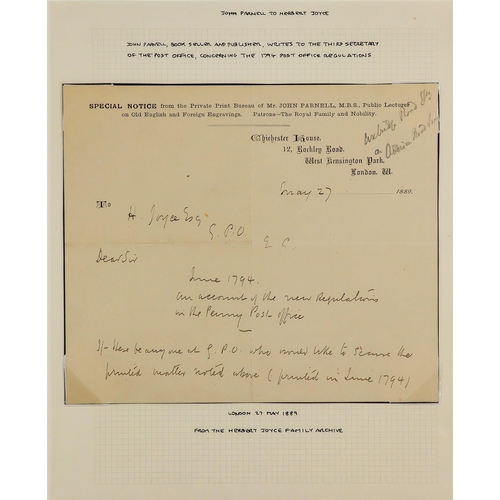 JOHN PARNELL TO HERBERT JOYCE
JOHN PARNELL, BOOK SELLER AND PUBLISHER, WRITES TO THE THIRD SECRETARY
OF THE POST OFFICE, CONCERNING THE 1794 POST OFFICE REGULATIONS
SPECIAL NOTICE from the Private Print Bureau of Mr. JOHN PARNELL, M.B.S., Public Lecturer
on Old English and Foreign Engravings. Patrons—The Royal Family and Nobility.
Chichester House,
12, Rockley Road,
West Kensington Park,
London, W.
May 27 1889.
To
H. Joyce Esq
G. P. O
E C.
Dear Sir
June 1794.
An account of the new Regulations
in the Penny Post office
If there be any one at G. P. O. who would like to secure the
printed matter noted above (printed in June 1794)
LONDON 27 MAY 1889
FROM THE HERBERT JOYCE FAMILY ARCHIVE